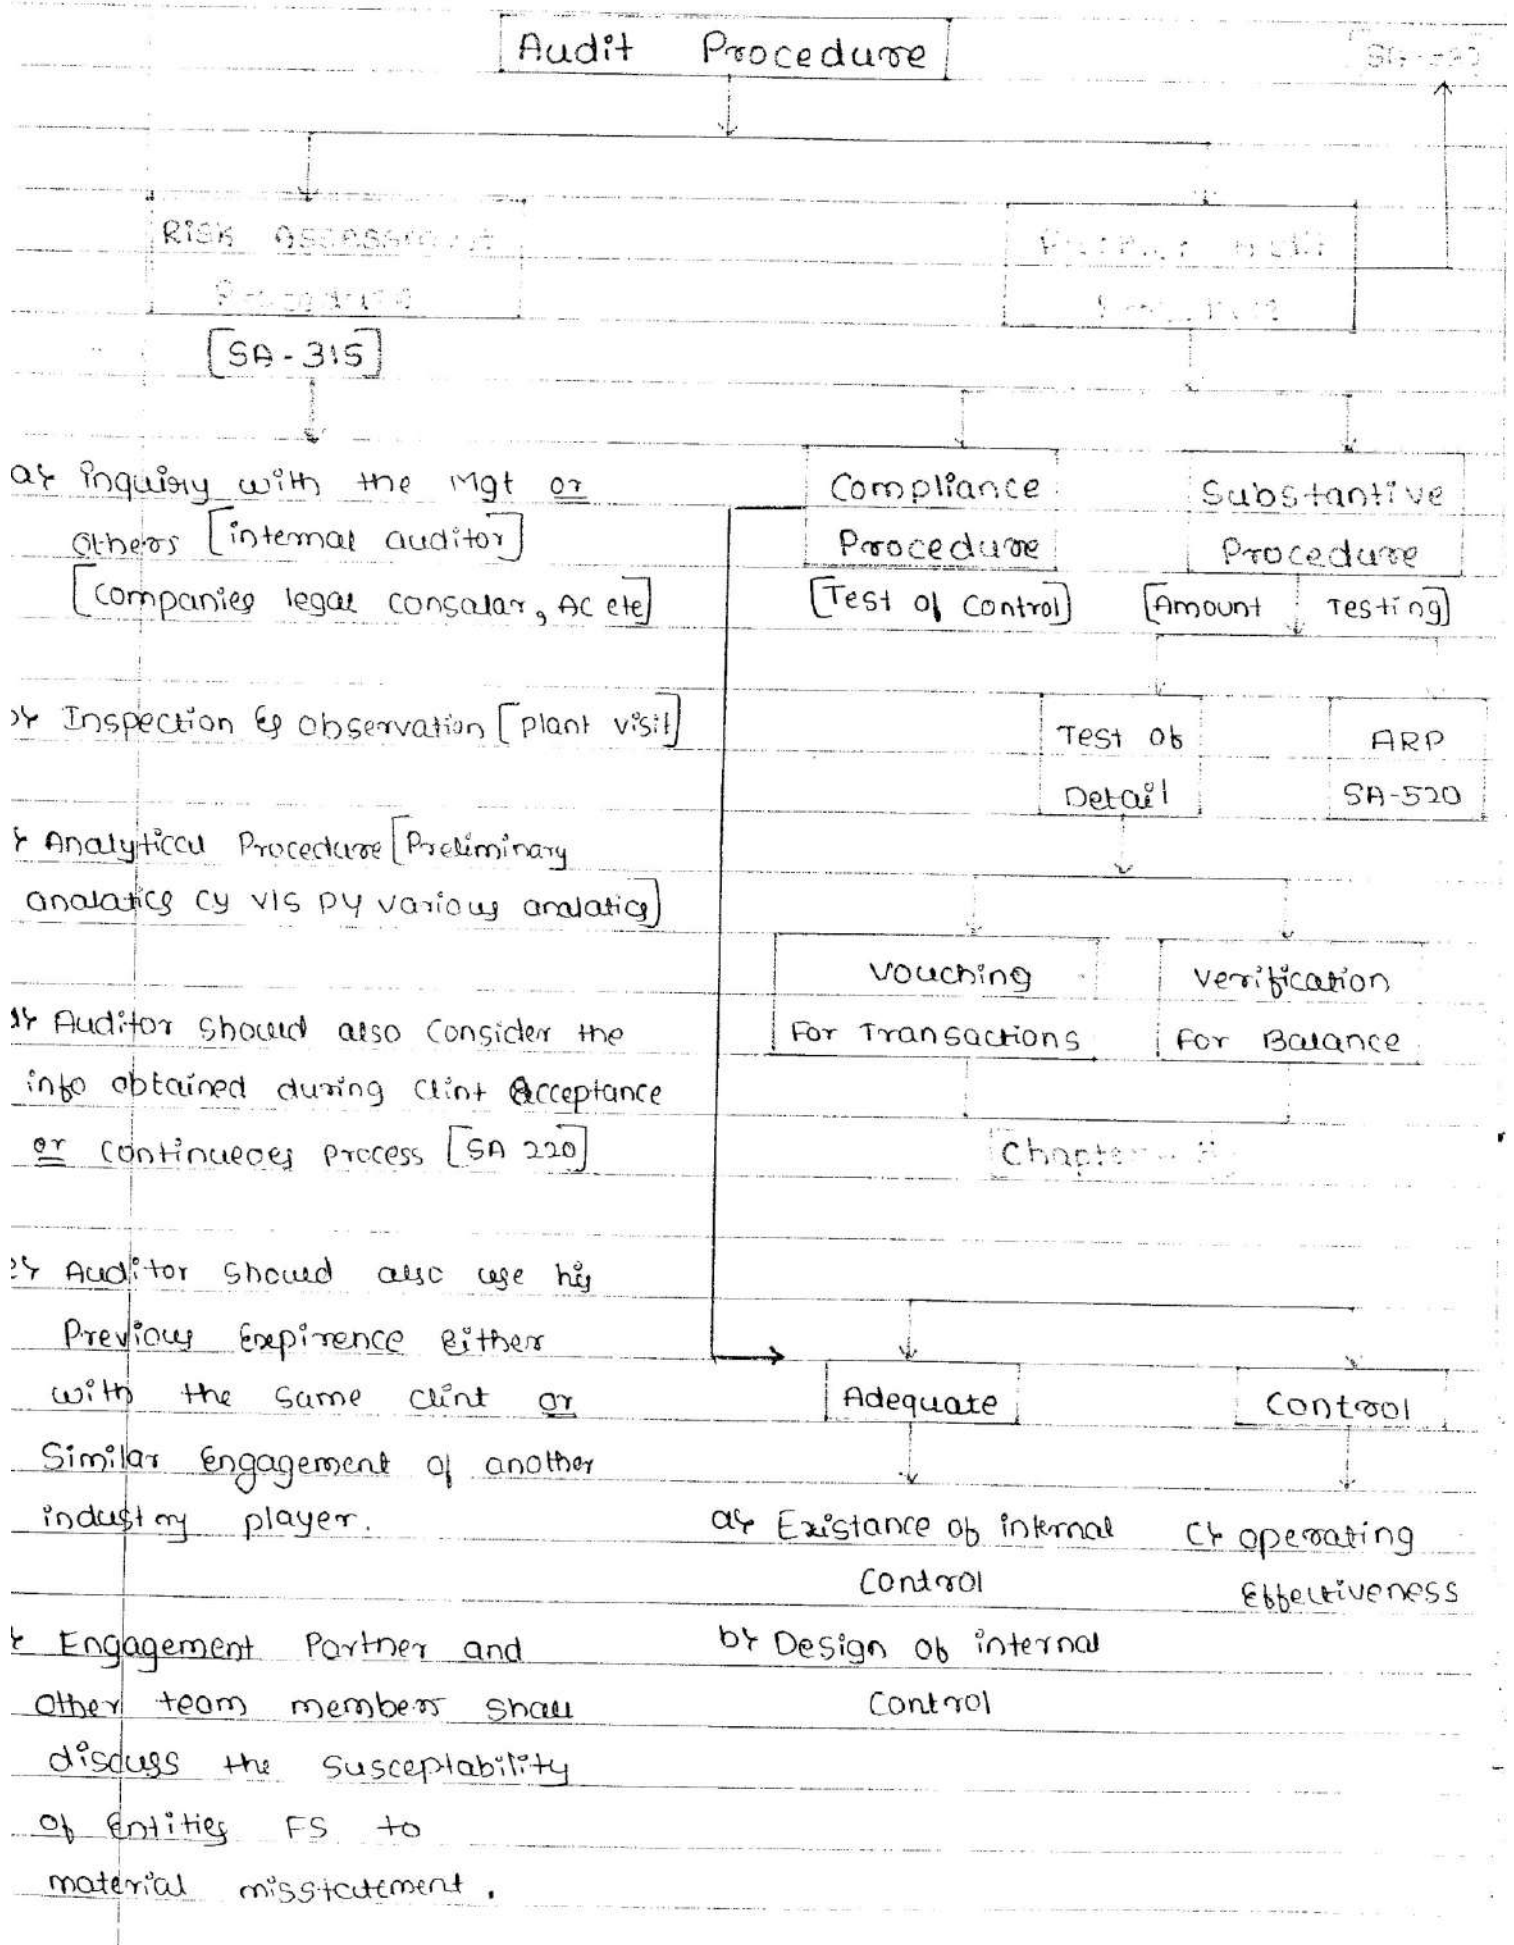 Audit Procedure
Risk Assessment
Procedure
[SA-315]
a) inquiry with the Mgt or
others [internal auditor]
[companies legal consalar, AC etc]
b) Inspection & observation [plant visit]
Analytical Procedure [Preliminary
analatics cy v/s py various analatics]
Auditor should also consider the
info obtained during clint Acceptance
or continueoes process [SA 220]
Auditor should also use his
Previous Expirence either
with the same clint or
Similar Engagement of another
industry player.
Engagement Partner and
other team members shall
discuss the susceptability
of Entities FS to
material misstatement.
Compliance
Procedure
[Test of control]
Substantive
Procedure
[Amount Testing]
Test of
Detail
ARP
SA-520
Vouching
For Transactions
Verification
For Balance
Adequate
Control
a) Existance of internal
Control
b) Design of internal
Control
c) operating
Effectiveness